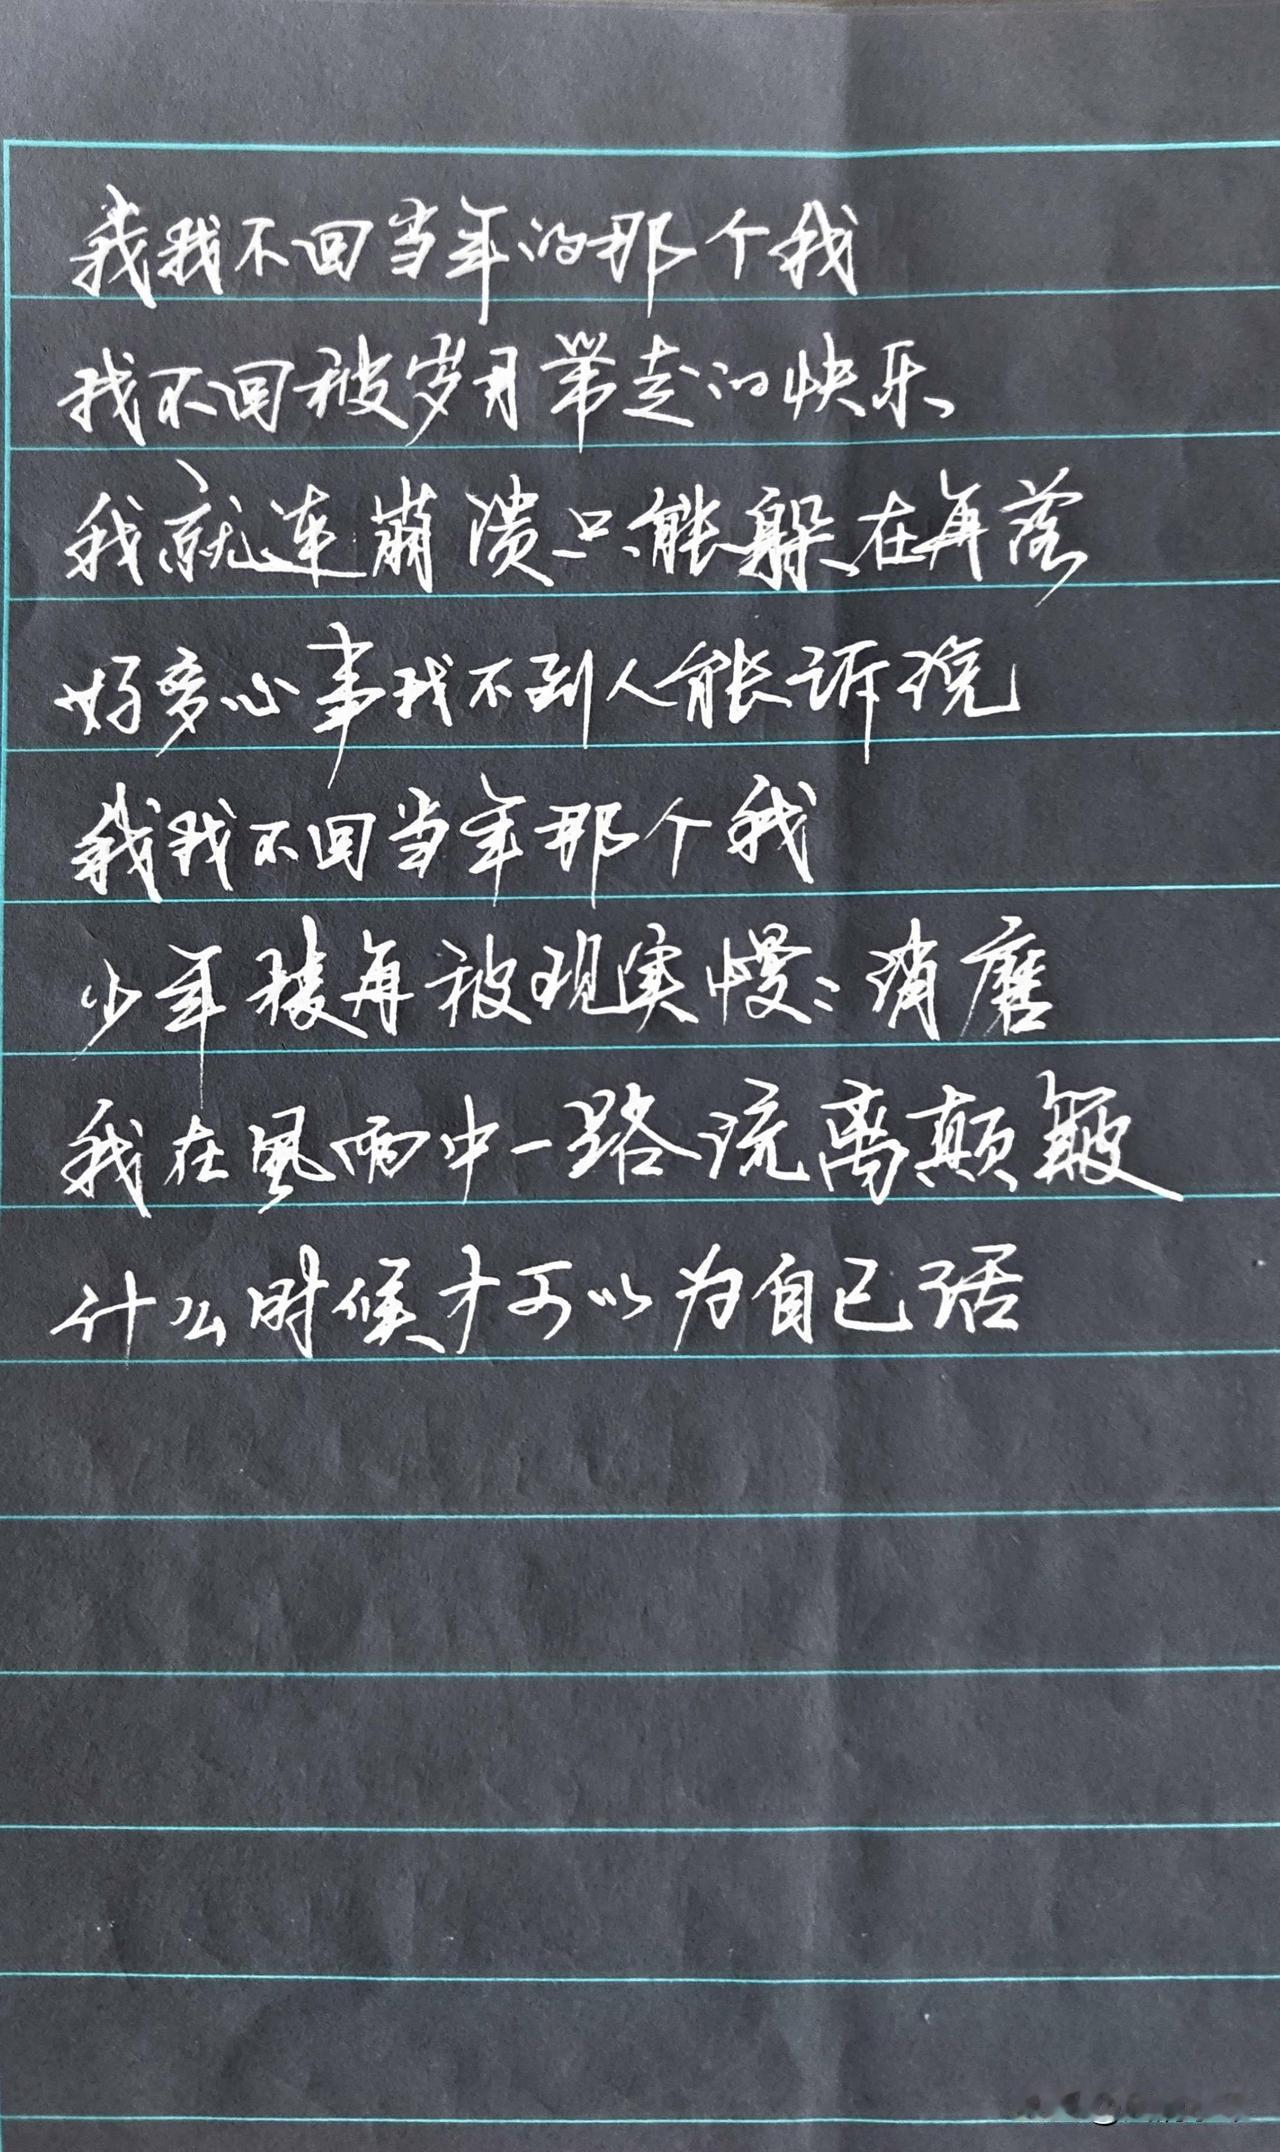 我找不回当年的那个我
找不回被岁月带走的快乐
我就连崩溃只能躲在角落
好多心事找不到人能诉说
我找不回当年那个我
少年棱角被现实慢慢消磨
我在风雨中一路流离颠簸
什么时候才可以为自己活